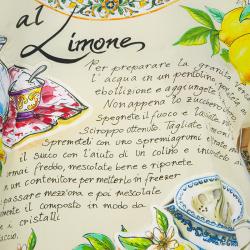 al Limone
Per preparare la granita
l'acqua in un pentolino
ebollizione e aggungete
Non appena lo zucchero
Spegnete il fuoco e lasciate
Sciroppo ottenuto. Tagliate i limoni
Spremeteli con uno spremiagrumi
il succo con l'aiuto di un colino e
mai freddo, mescolate bene e riponete
in un contenitore per metterlo in freezer
passare mezz'ora e poi mescolate
il composto in modo da
cristalli